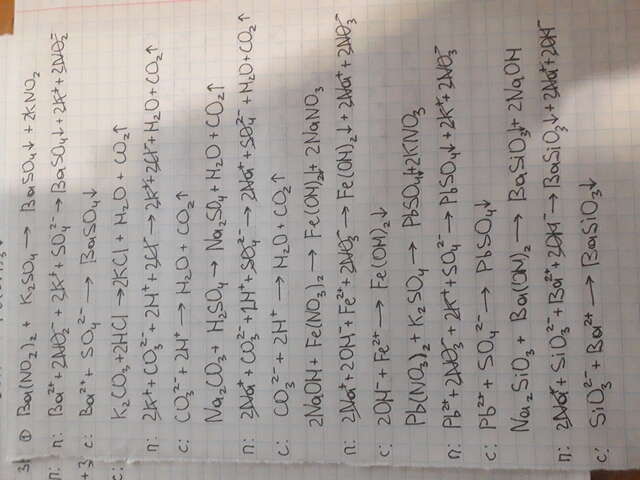 3) ① Ba(NO₂)₂ + K₂SO₄ → BaSO₄↓ + 2KNO₂
п: п: Ba²⁺ + 2NO₂⁻ + 2K⁺ + SO₄²⁻ → BaSO₄↓ + 2K⁺ + 2NO₂⁻
+3 с: Ba²⁺ + SO₄²⁻ → BaSO₄↓
с: K₂CO₃ + 2HCl → 2KCl + H₂O + CO₂↑
п: 2K⁺ + CO₃²⁻ + 2H⁺ + 2Cl⁻ → 2K⁺ + 2Cl⁻ + H₂O + CO₂↑
с: CO₃²⁻ + 2H⁺ → H₂O + CO₂↑
Na₂CO₃ + H₂SO₄ → Na₂SO₄ + H₂O + CO₂↑
п: 2Na⁺ + CO₃²⁻ + 2H⁺ + SO₄²⁻ → 2Na⁺ + SO₄²⁻ + H₂O + CO₂↑
с: CO₃²⁻ + 2H⁺ → H₂O + CO₂↑
2NaOH + Fe(NO₃)₂ → Fe(OH)₂↓ + 2NaNO₃
п: 2Na⁺ + 2OH⁻ + Fe²⁺ + 2NO₃⁻ → Fe(OH)₂↓ + 2Na⁺ + 2NO₃⁻
с: 2OH⁻ + Fe²⁺ → Fe(OH)₂↓
Pb(NO₃)₂ + K₂SO₄ → PbSO₄↓ + 2KNO₃
п: Pb²⁺ + 2NO₃⁻ + 2K⁺ + SO₄²⁻ → PbSO₄↓ + 2K⁺ + 2NO₃⁻
с: Pb²⁺ + SO₄²⁻ → PbSO₄↓
Na₂SiO₃ + Ba(OH)₂ → BaSiO₃↓ + 2NaOH
п: 2Na⁺ + SiO₃²⁻ + Ba²⁺ + 2OH⁻ → BaSiO₃↓ + 2Na⁺ + 2OH⁻
с: SiO₃²⁻ + Ba²⁺ → BaSiO₃↓